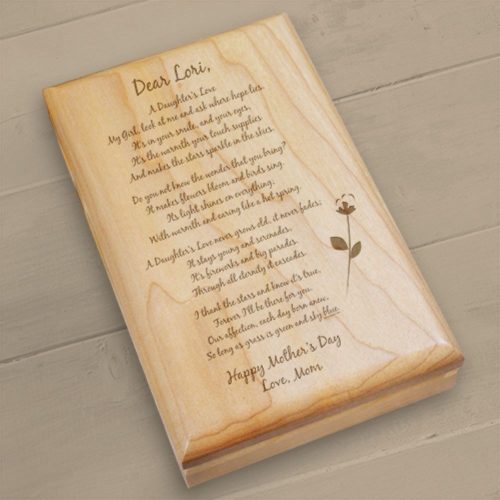 Dear Lori,
A Daughter's Love
My Girl, look at me and ask where hope lies.
It's in your smile, and your eyes,
It's the warmth your touch supplies
And makes the stars sparkle in the skies.
Do you not know the wonder that you bring?
It makes flowers bloom and birds sing.
Its light shines on everything,
With warmth and caring like a hot spring.
A Daughter's Love never grows old, it never fades;
It stays young and serenades,
It's fireworks and big parades,
Through all eternity it cascades.
I thank the stars and know it's true,
Forever I'll be there for you.
Our affection, each day born anew,
So long as grass is green and sky blue.
Happy Mother's Day
Love, Mom